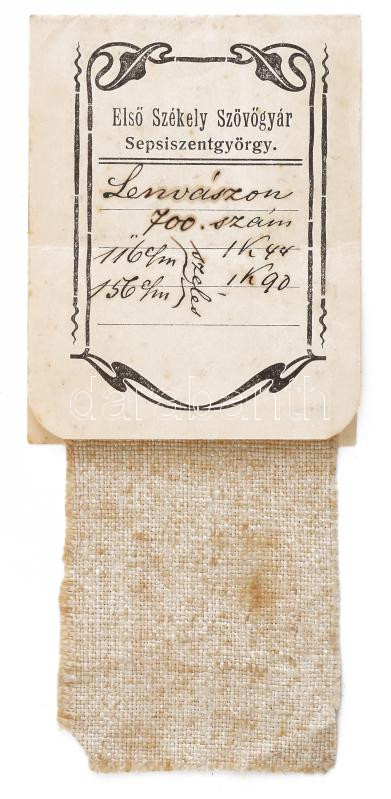 Első Székely Szövőgyár
Sepsiszentgyörgy.
Lenvászon
700. szám
116 c/m széles 1K 44
156 c/m 1K 90
darabanth